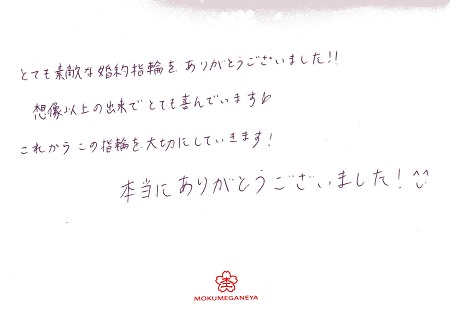 とても素敵な婚約指輪を ありがとうございました!!
想像以上の出来でとても喜んでいます♪
これから この指輪を 大切にしていきます!
本当にありがとうございました! ^^
MOKUMEGANEYA